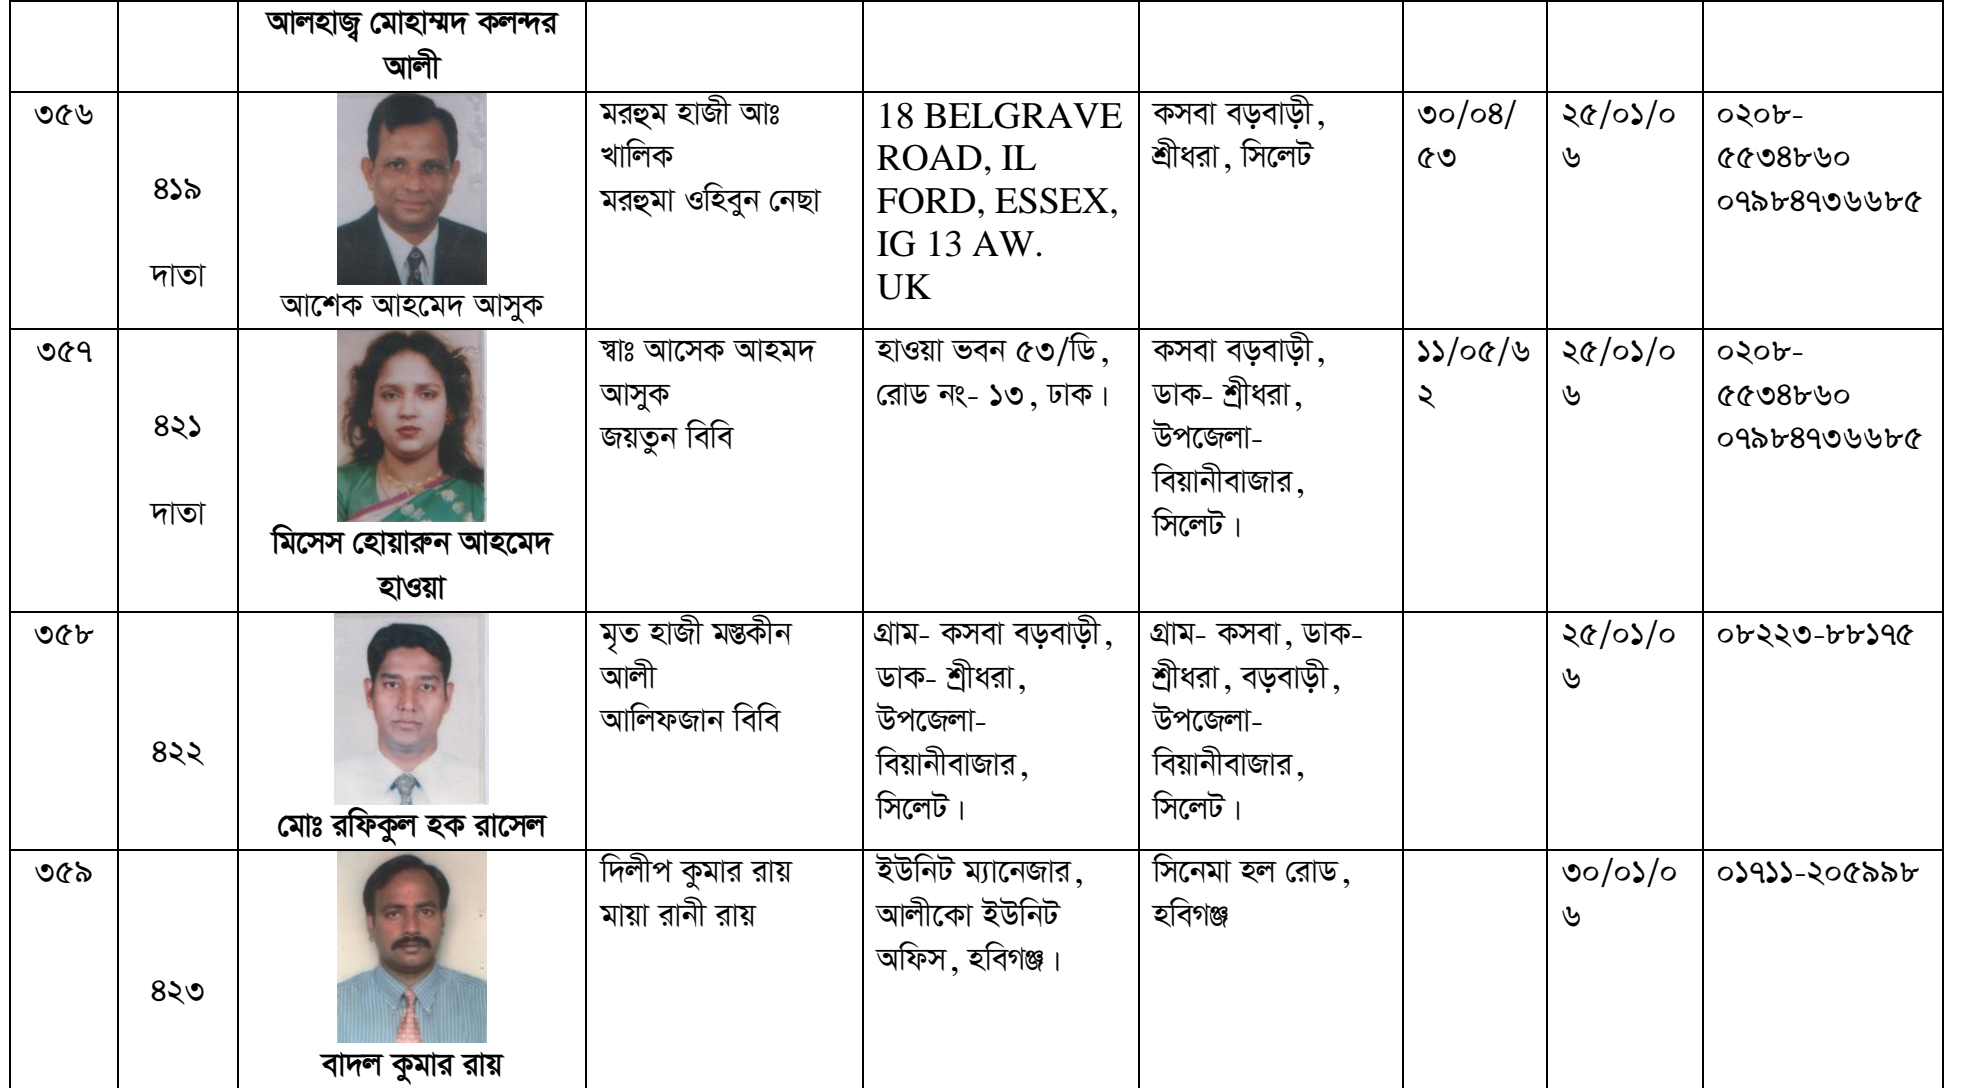 আলহাজ্ব মোহাম্মদ কলন্দর
আলী
৩৫৬
৪১৯
দাতা
আশেক আহমেদ আসুক
মরহুম হাজী আঃ
খালিক
মরহুমা ওহিবুন নেছা
18 BELGRAVE
ROAD, IL
FORD, ESSEX,
IG 13 AW.
UK
কসবা বড়বাড়ী,
শ্রীধরা, সিলেট
৩০/০৪/
৫৩
২৫/০১/০
৬
০২০৮-
৫৫৩৪৮৬০
০৭৯৮৪৭৩৬৬৮৫
৩৫৭
৪২১
দাতা
মিসেস হোয়ারুন আহমেদ
হাওয়া
স্বাঃ আসেক আহমদ
আসুক
জয়তুন বিবি
হাওয়া ভবন ৫৩/ডি,
রোড নং- ১৩, ঢাক।
কসবা বড়বাড়ী,
ডাক- শ্রীধরা,
উপজেলা-
বিয়ানীবাজার,
সিলেট।
১১/০৫/৬
২
২৫/০১/০
৬
০২০৮-
৫৫৩৪৮৬০
০৭৯৮৪৭৩৬৬৮৫
৩৫৮
৪২২
মোঃ রফিকুল হক রাসেল
মৃত হাজী মস্তকীন
আলী
আলিফজান বিবি
গ্রাম- কসবা বড়বাড়ী,
ডাক- শ্রীধরা,
উপজেলা-
বিয়ানীবাজার,
সিলেট।
গ্রাম- কসবা, ডাক-
শ্রীধরা, বড়বাড়ী,
উপজেলা-
বিয়ানীবাজার,
সিলেট।
২৫/০১/০
৬
০৮২২৩-৮৮১৭৫
৩৫৯
৪২৩
বাদল কুমার রায়
দিলীপ কুমার রায়
মায়া রানী রায়
ইউনিট ম্যানেজার,
আলীকো ইউনিট
অফিস, হবিগঞ্জ।
সিনেমা হল রোড,
হবিগঞ্জ
৩০/০১/০
৬
০১৭১১-২০৫৯৯৮